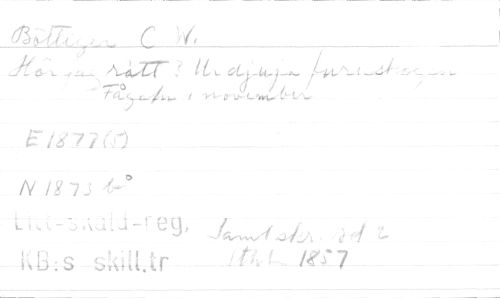 Böttiger C W.
Hör jag rätt? Ur djupa furuskogen
Fågeln i november
E 1877(5)
N 1873 bo
Litt-skald-reg. Saml skr. bd 2
KB:s skill.tr Sthlm 1857